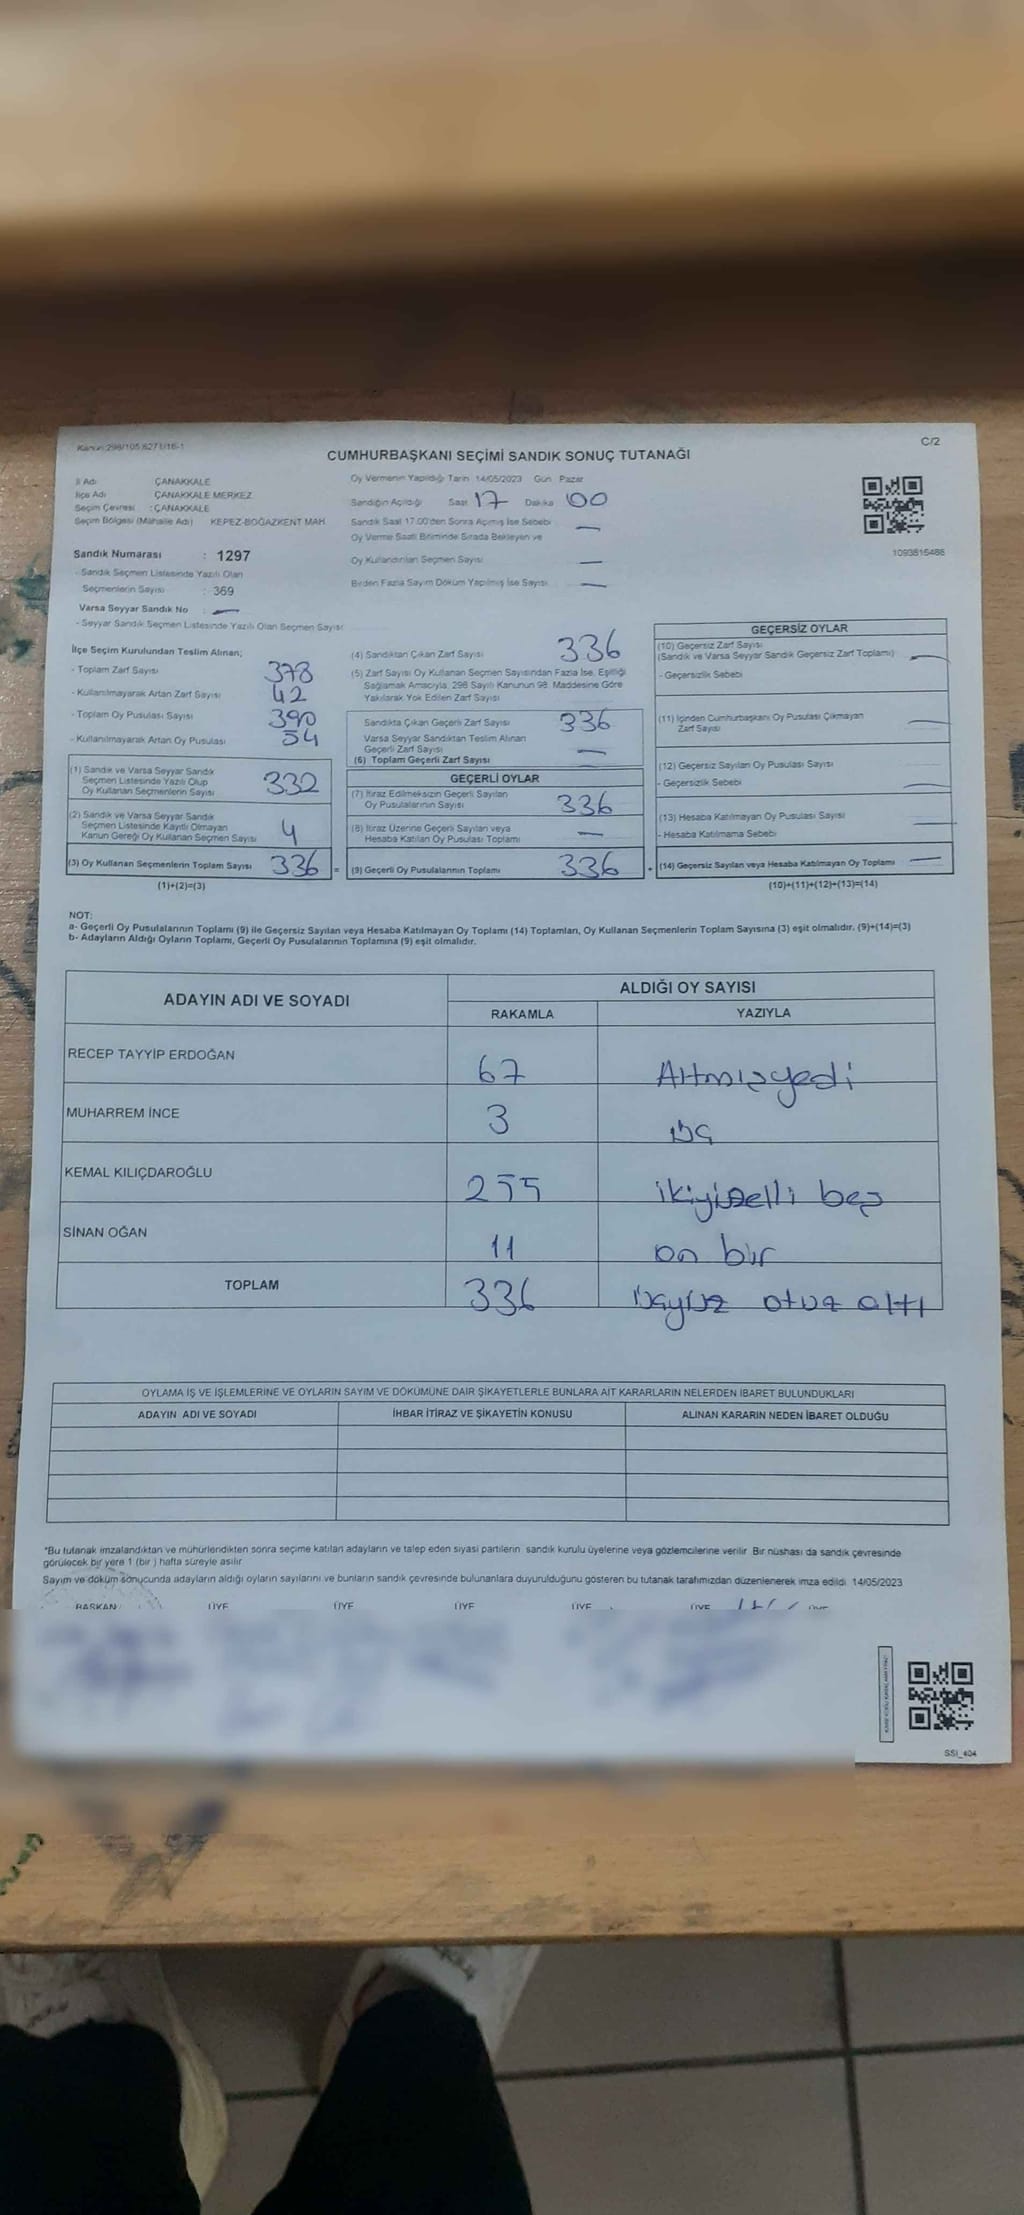 Kanun:298/105,6271/16-1
C/2
CUMHURBAŞKANI SEÇİMİ SANDIK SONUÇ TUTANAĞI
İl Adı ÇANAKKALE
İlçe Adı ÇANAKKALE MERKEZ
Seçim Çevresi : ÇANAKKALE
Seçim Bölgesi (Mahalle Adı) KEPEZ-BOĞAZKENT MAH.
Sandık Numarası : 1297
- Sandık Seçmen Listesinde Yazılı Olan
Seçmenlerin Sayısı : 369
Varsa Seyyar Sandık No : —
- Seyyar Sandık Seçmen Listesinde Yazılı Olan Seçmen Sayısı:
Oy Vermenin Yapıldığı Tarih 14/05/2023 Gün Pazar
Sandığın Açıldığı Saat 17 Dakika 00
Sandık Saat 17.00'den Sonra Açılmış İse Sebebi —
Oy Verme Saati Bitiminde Sırada Bekleyen ve
Oy Kullandırılan Seçmen Sayısı —
Birden Fazla Sayım Döküm Yapılmış İse Sayısı —
1093815486
İlçe Seçim Kurulundan Teslim Alınan;
- Toplam Zarf Sayısı 378
- Kullanılmayarak Artan Zarf Sayısı 42
- Toplam Oy Pusulası Sayısı 390
- Kullanılmayarak Artan Oy Pusulası 54
(1) Sandık ve Varsa Seyyar Sandık
Seçmen Listesinde Yazılı Olup
Oy Kullanan Seçmenlerin Sayısı 332
(2) Sandık ve Varsa Seyyar Sandık
Seçmen Listesinde Kayıtlı Olmayan
Kanun Gereği Oy Kullanan Seçmen Sayısı 4
(3) Oy Kullanan Seçmenlerin Toplam Sayısı 336
(1)+(2)=(3)
(4) Sandıktan Çıkan Zarf Sayısı 336
(5) Zarf Sayısı Oy Kullanan Seçmen Sayısından Fazla İse, Eşitliği
Sağlamak Amacıyla, 298 Sayılı Kanunun 98. Maddesine Göre
Yakılarak Yok Edilen Zarf Sayısı
Sandıkta Çıkan Geçerli Zarf Sayısı 336
Varsa Seyyar Sandıktan Teslim Alınan
Geçerli Zarf Sayısı —
(6) Toplam Geçerli Zarf Sayısı
GEÇERLİ OYLAR
(7) İtiraz Edilmeksizin Geçerli Sayılan
Oy Pusulalarının Sayısı 336
(8) İtiraz Üzerine Geçerli Sayılan veya
Hesaba Katılan Oy Pusulası Toplamı —
= (9) Geçerli Oy Pusulalarının Toplamı 336
GEÇERSİZ OYLAR
(10) Geçersiz Zarf Sayısı
(Sandık ve Varsa Seyyar Sandık Geçersiz Zarf Toplamı) —
- Geçersizlik Sebebi
(11) İçinden Cumhurbaşkanı Oy Pusulası Çıkmayan
Zarf Sayısı —
(12) Geçersiz Sayılan Oy Pusulası Sayısı
- Geçersizlik Sebebi —
(13) Hesaba Katılmayan Oy Pusulası Sayısı —
- Hesaba Katılmama Sebebi
+ (14) Geçersiz Sayılan veya Hesaba Katılmayan Oy Toplamı —
(10)+(11)+(12)+(13)=(14)
NOT:
a- Geçerli Oy Pusulalarının Toplamı (9) ile Geçersiz Sayılan veya Hesaba Katılmayan Oy Toplamı (14) Toplamları, Oy Kullanan Seçmenlerin Toplam Sayısına (3) eşit olmalıdır. (9)+(14)=(3)
b- Adayların Aldığı Oyların Toplamı, Geçerli Oy Pusulalarının Toplamına (9) eşit olmalıdır.
ADAYIN ADI VE SOYADI
ALDIĞI OY SAYISI
RAKAMLA YAZIYLA
RECEP TAYYİP ERDOĞAN 67 Altmışyedi
MUHARREM İNCE 3 üç
KEMAL KILIÇDAROĞLU 255 ikiyüzelli beş
SİNAN OĞAN 11 on bir
TOPLAM 336 üçyüz otuz altı
OYLAMA İŞ VE İŞLEMLERİNE VE OYLARIN SAYIM VE DÖKÜMÜNE DAİR ŞİKAYETLERLE BUNLARA AİT KARARLARIN NELERDEN İBARET BULUNDUKLARI
ADAYIN ADI VE SOYADI İHBAR İTİRAZ VE ŞİKAYETİN KONUSU ALINAN KARARIN NEDEN İBARET OLDUĞU
*Bu tutanak imzalandıktan ve mühürlendikten sonra seçime katılan adayların ve talep eden siyasi partilerin sandık kurulu üyelerine veya gözlemcilerine verilir. Bir nüshası da sandık çevresinde
görülecek bir yere 1 (bir ) hafta süreyle asılır
Sayım ve döküm sonucunda adayların aldığı oyların sayılarını ve bunların sandık çevresinde bulunanlara duyurulduğunu gösteren bu tutanak tarafımızdan düzenlenerek imza edildi 14/05/2023
BAŞKAN ÜYE ÜYE ÜYE ÜYE ÜYE ÜYE
SSI_404